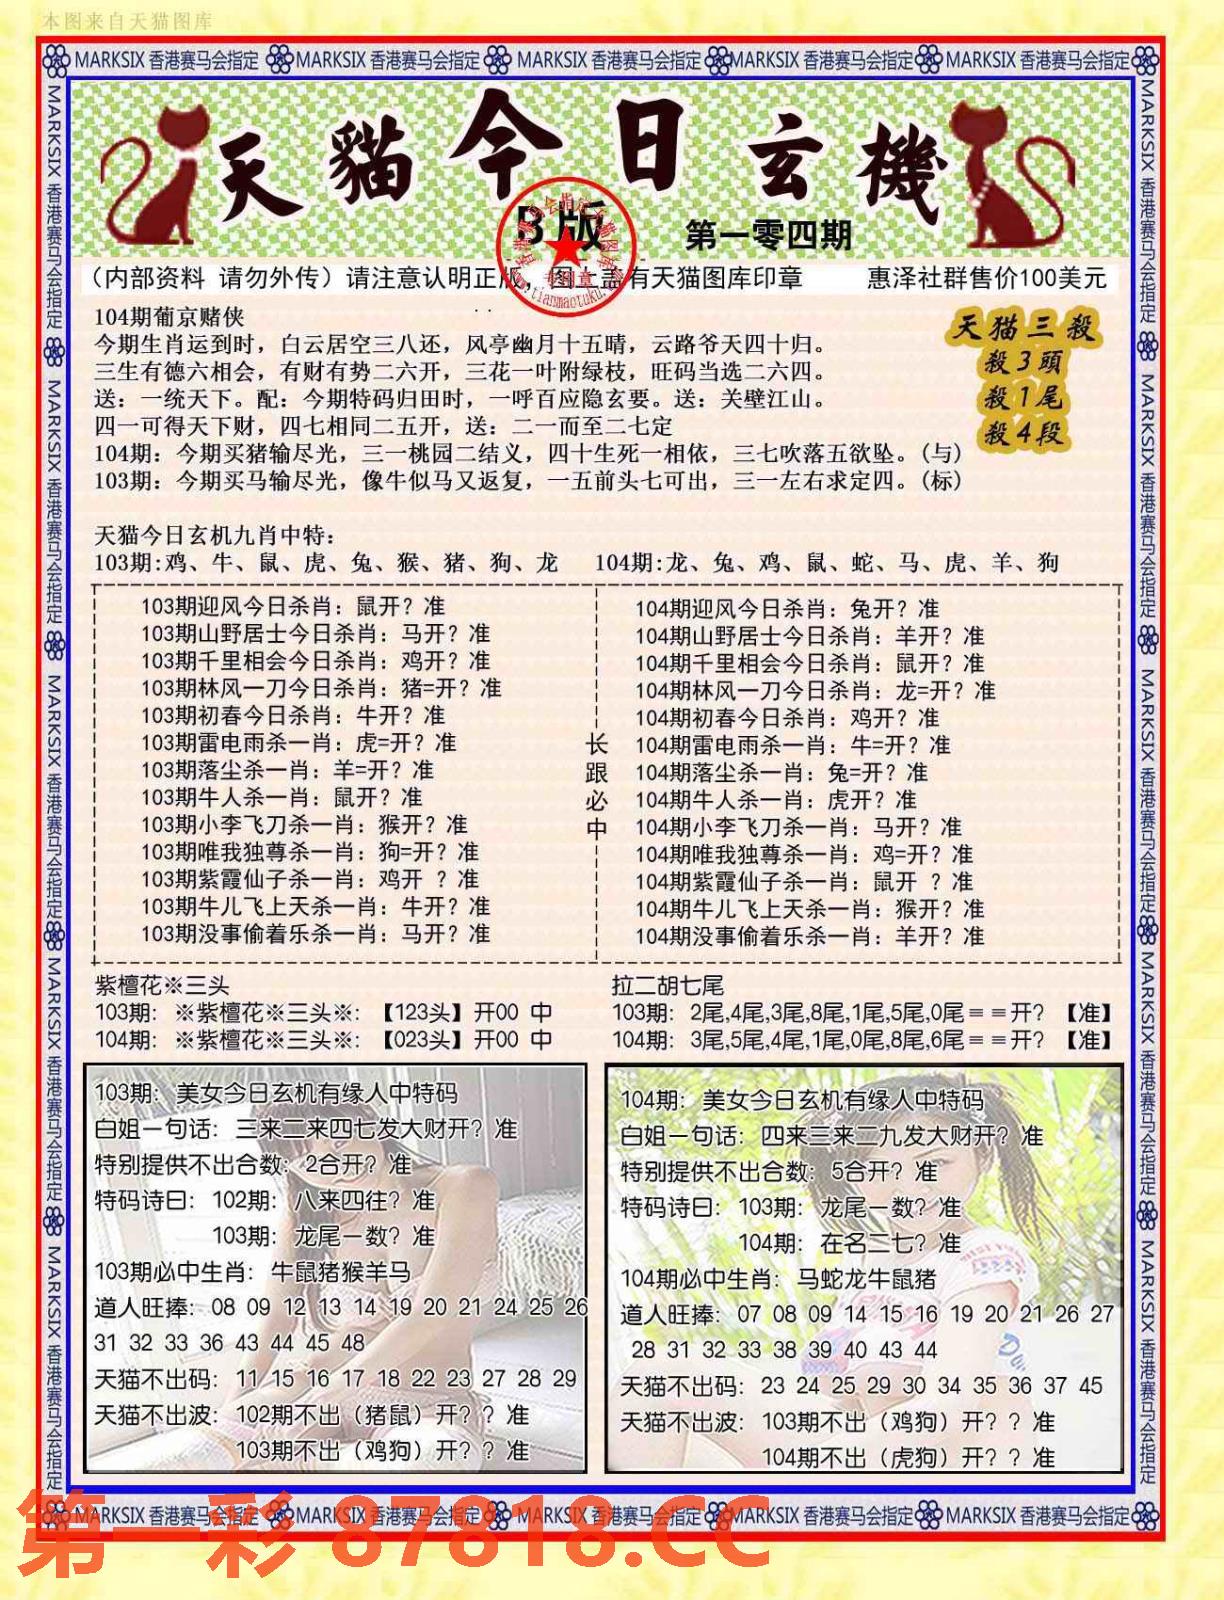 本图来自天猫图库
MARKSIX 香港赛马会指定 MARKSIX 香港赛马会指定 MARKSIX 香港赛马会指定 MARKSIX 香港赛马会指定 MARKSIX 香港赛马会指定
天貓今日玄機
B版
第一零四期
(内部资料 请勿外传) 请注意认明正版, 图上盖有天猫图库印章 惠泽社群售价100美元
104期葡京赌侠
今期生肖运到时，白云居空三八还，风亭幽月十五晴，云路爷天四十归。
三生有德六相会，有财有势二六开，三花一叶附绿枝，旺码当选二六四。
送：一统天下。配：今期特码归田时，一呼百应隐玄要。送：关壁江山。
四一可得天下财，四七相同二五开，送：二一而至二七定
104期：今期买猪输尽光，三一桃园二结义，四十生死一相依，三七吹落五欲坠。(与)
103期：今期买马输尽光，像牛似马又返复，一五前头七可出，三一左右求定四。(标)
天猫三殺
殺3頭
殺1尾
殺4段
天猫今日玄机九肖中特：
103期:鸡、牛、鼠、虎、兔、猴、猪、狗、龙 104期:龙、兔、鸡、鼠、蛇、马、虎、羊、狗
103期迎风今日杀肖：鼠开？准
103期山野居士今日杀肖：马开？准
103期千里相会今日杀肖：鸡开？准
103期林风一刀今日杀肖：猪=开？准
103期初春今日杀肖：牛开？准
103期雷电雨杀一肖：虎=开？准
103期落尘杀一肖：羊=开？准
103期牛人杀一肖：鼠开？准
103期小李飞刀杀一肖：猴开？准
103期唯我独尊杀一肖：狗=开？准
103期紫霞仙子杀一肖：鸡开 ？准
103期牛儿飞上天杀一肖：牛开？准
103期没事偷着乐杀一肖：马开？准
长跟必中
104期迎风今日杀肖：兔开？准
104期山野居士今日杀肖：羊开？准
104期千里相会今日杀肖：鼠开？准
104期林风一刀今日杀肖：龙=开？准
104期初春今日杀肖：鸡开？准
104期雷电雨杀一肖：牛=开？准
104期落尘杀一肖：兔=开？准
104期牛人杀一肖：虎开？准
104期小李飞刀杀一肖：马开？准
104期唯我独尊杀一肖：鸡=开？准
104期紫霞仙子杀一肖：鼠开 ？准
104期牛儿飞上天杀一肖：猴开？准
104期没事偷着乐杀一肖：羊开？准
紫檀花※三头
103期：※紫檀花※三头※：【123头】开00 中
104期：※紫檀花※三头※：【023头】开00 中
拉二胡七尾
103期：2尾,4尾,3尾,8尾,1尾,5尾,0尾==开？【准】
104期：3尾,5尾,4尾,1尾,0尾,8尾,6尾==开？【准】
103期：美女今日玄机有缘人中特码
白姐一句话：三来二来四七发大财开？准
特别提供不出合数：2合开？准
特码诗曰：102期：八来四往？准
103期：龙尾一数？准
103期必中生肖：牛鼠猪猴羊马
道人旺捧：08 09 12 13 14 19 20 21 24 25 26
31 32 33 36 43 44 45 48
天猫不出码：11 15 16 17 18 22 23 27 28 29
天猫不出波：102期不出（猪鼠）开？？准
103期不出（鸡狗）开？？准
104期：美女今日玄机有缘人中特码
白姐一句话：四来三来二九发大财开？准
特别提供不出合数：5合开？准
特码诗曰：103期：龙尾一数？准
104期：在名二七？准
104期必中生肖：马蛇龙牛鼠猪
道人旺捧：07 08 09 14 15 16 19 20 21 26 27
28 31 32 33 38 39 40 43 44
天猫不出码：23 24 25 29 30 34 35 36 37 45
天猫不出波：103期不出（鸡狗）开？？准
104期不出（虎狗）开？？准
MARKSIX 香港赛马会指定 MARKSIX 香港赛马会指定 MARKSIX 香港赛马会指定 MARKSIX 香港赛马会指定 MARKSIX 香港赛马会指定
第一彩 87818.CC